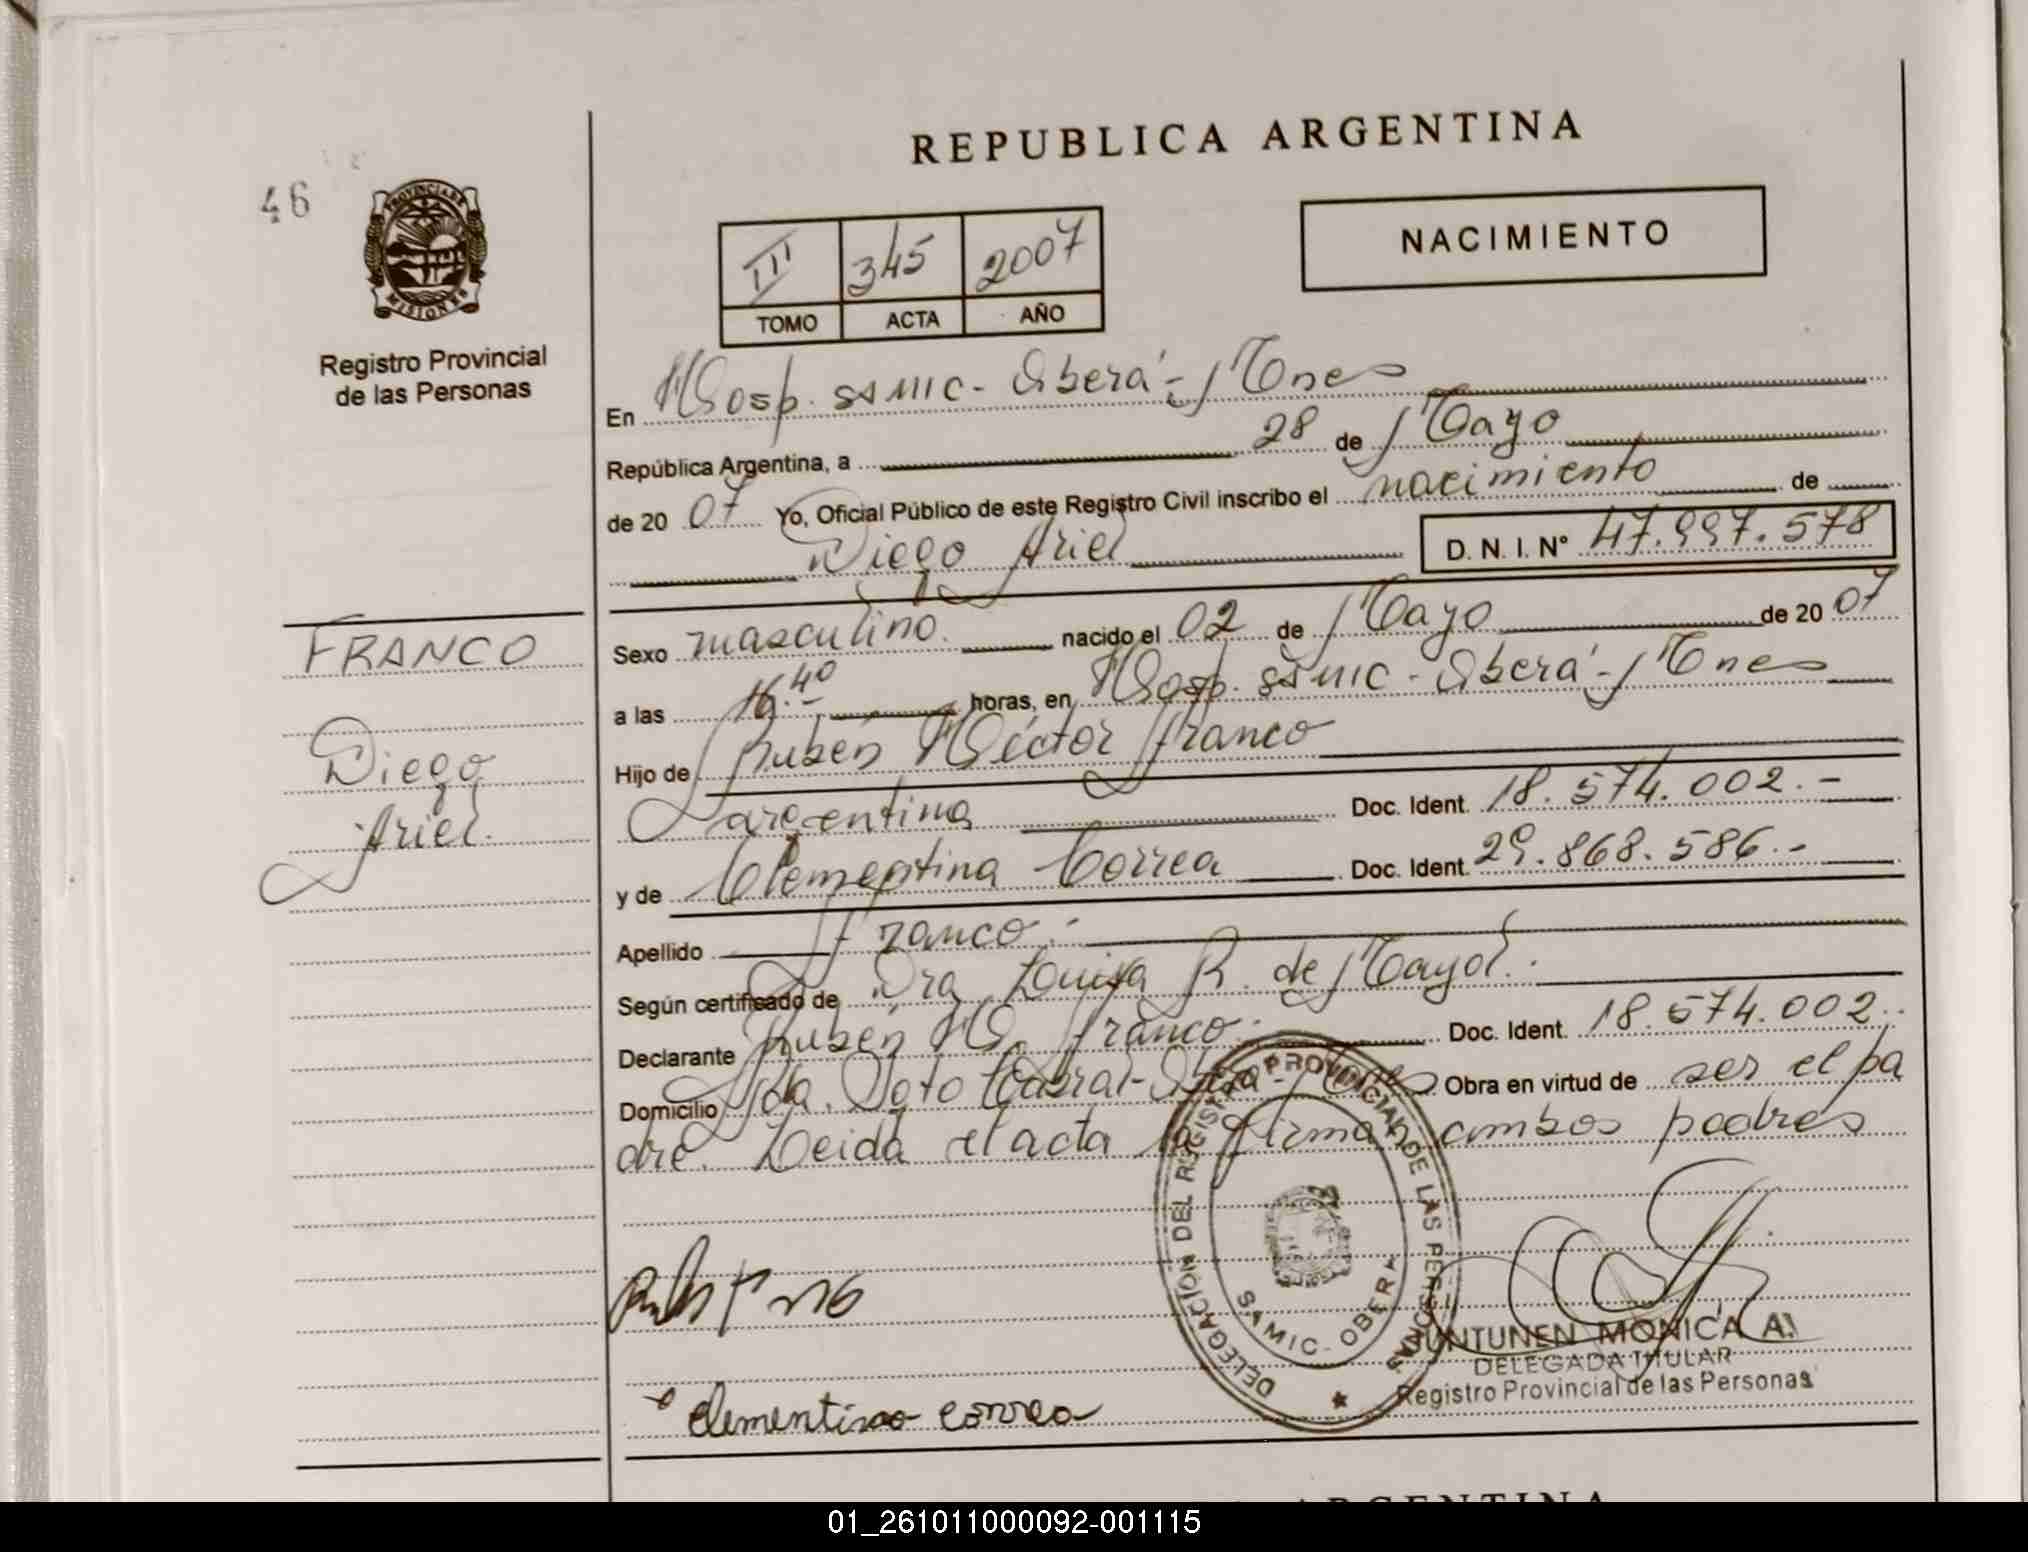 REPUBLICA ARGENTINA
46
PROVINCIA DE MISIONES
Registro Provincial
de las Personas
III 345 2007
TOMO ACTA AÑO
NACIMIENTO
En Hosp. SAMIC - Oberá - Mnes
República Argentina, a 28 de Mayo
de 20 07 Yo, Oficial Público de este Registro Civil inscribo el nacimiento de
Diego Ariel D. N. I. Nº 47.997.578
FRANCO
Diego
Ariel.
Sexo masculino. nacido el 02 de Mayo de 20 07
a las 16.40 horas, en Hosp. SAMIC - Oberá - Mnes
Hijo de Rubén Héctor Franco
argentina Doc. Ident. 18.574.002.-
y de Clementina Correa Doc. Ident. 29.868.586.-
Apellido Franco.-
Según certificado de Dra Luisa R. de Mayol.
Declarante Rubén H. Franco. Doc. Ident. 18.574.002.
Domicilio Avda. Soto Cabral - Oberá - Mnes Obra en virtud de ser el pa
dre. Leida el acta la firman ambos padres
DELEGACION DEL REGISTRO PROVINCIAL DE LAS PERSONAS
SAMIC - OBERA
JUNTUNEN MONICA A.
DELEGADA TITULAR
Registro Provincial de las Personas
clementina correa
ARGENTINA
01_261011000092-001115